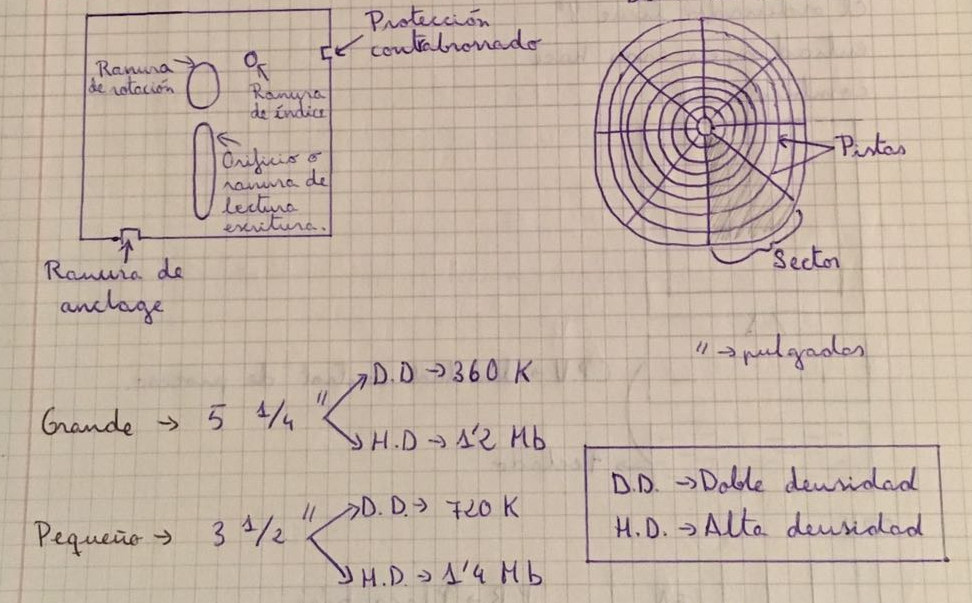 Protección
contraborrado
Ranura
de rotación
Ranura
de índice
Orificio o
ranura de
lectura
escritura.
Ranura de
anclage
Pistas
Sector
" → pulgadas
Grande → 5 1/4 "
D.D → 360 K
H.D → 1'2 Mb
Pequeño → 3 1/2 "
D.D. → 720 K
H.D. → 1'4 Mb
D.D. → Doble densidad
H.D. → Alta densidad